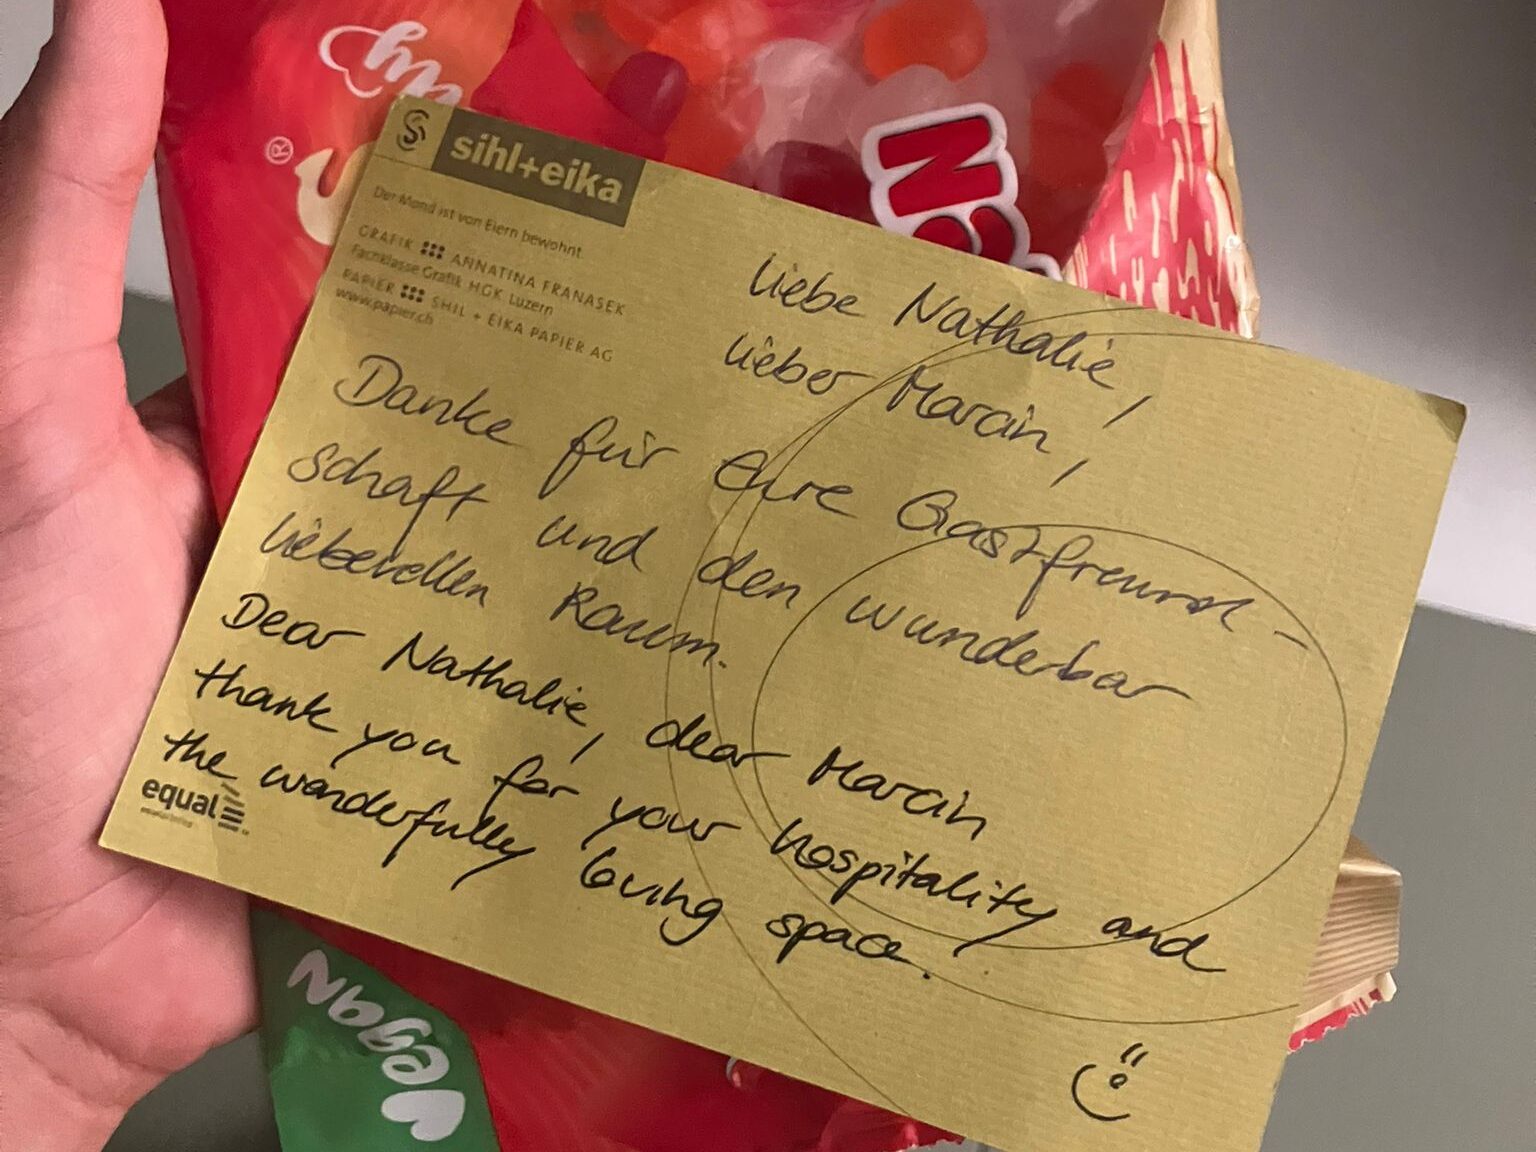 ®
Na
sihl+eika
Der Mond ist von Eiern bewohnt
GRAFIK ANNATINA FRANASEK
Fachklasse Grafik HGK Luzern
PAPIER SHIL + EIKA PAPIER AG
www.papier.ch
Liebe Nathalie,
lieber Marcin,
Danke für Eure Gastfreund-
schaft und den wunderbar
liebevollen Raum.
Dear Nathalie, dear Marcin
thank you for your hospitality and
the wonderfully loving space.
equal
Vegan